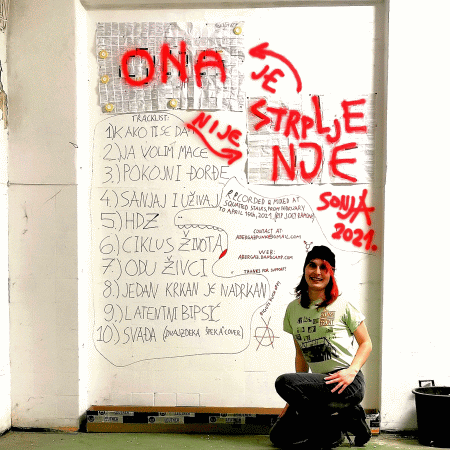 ONA
JE
NIJE
STRPLJE
NJE
SONJA
2021.
TRACKLIST:
1) KAKO TI SE DA
2) JA VOLIM MACE
3) POKOJNI ĐORĐE
4) SANJAJ I UŽIVAJ
5) HDZ
6) CIKLUS ŽIVOTA
7.) ODU ŽIVCI
8.) JEDAN KRKAN JE NADRKAN
9.) LATENTNI BIPSIĆ
10.) SVAĐA (DVAJZDEKA ŠPEKA COVER)
RECORDED & MIXED AT
SQUATTED STAIRS, FROM FEBRUARY
TO APRIL 10th, 2021
CONTACT AT:
ABERGAZPUNK@GMAIL.COM
WEB:
ABERGAZ.BANDCAMP.COM
THANKS FOR SUPPORT!